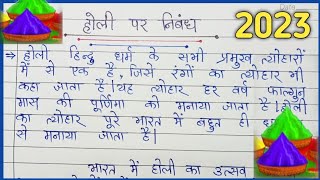 होली पर निबंध
2023
→ होली हिन्दू धर्म के सभी प्रमुख त्योहारों
में से एक है, जिसे रंगों का त्योहार भी
कहा जाता है। यह त्योहार हर वर्ष फाल्गुन
मास की पूर्णिमा को मनाया जाता है। होली
का त्योहार पूरे भारत में बहुत ही
से मनाया जाता है।
भारत में होली का उत्सव